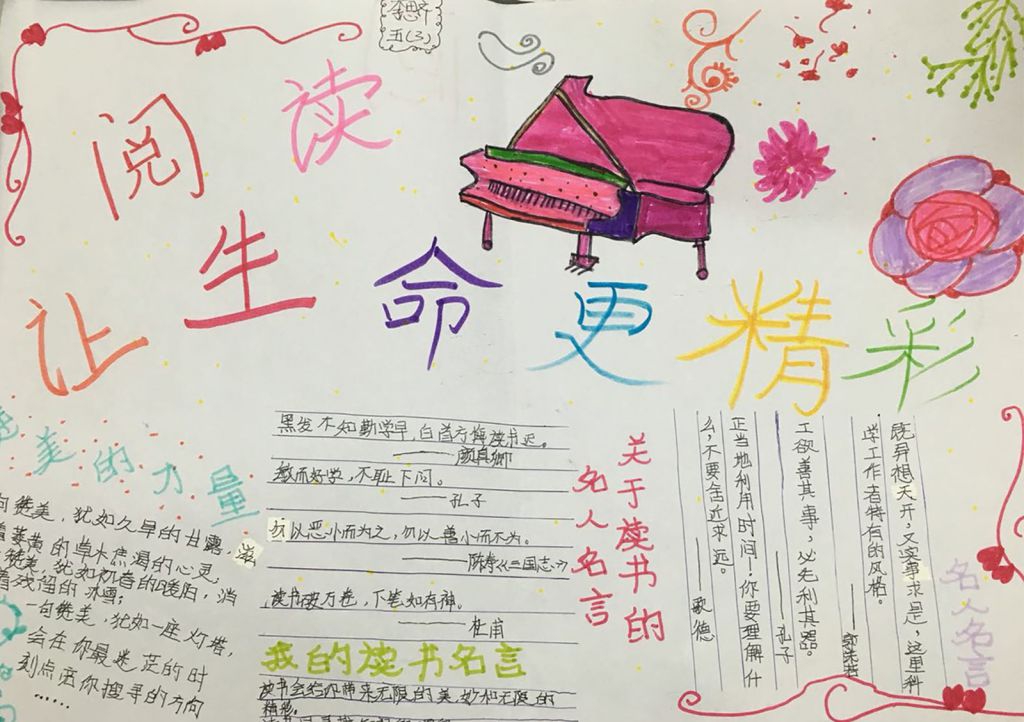 李思齐
五(3)
阅读
让生命更精彩
美的力量
句赞美，犹如久旱的甘露，滋
着萎黄的草木焦渴的心灵，
赞美，犹如初春的暖阳，消
着残留的冰雪；
一句赞美，犹如一座灯塔，
会在你最迷茫的时
刻点亮你搜寻的方向
……
黑发不知勤学早，白首方悔读书迟。
——颜真卿
敏而好学，不耻下问。
——孔子
勿以恶小而为之，勿以善小而不为。
——陈寿《三国志》
读书破万卷，下笔如有神。
——杜甫
我的读书名言
读书会给你带来无限的美妙和无限的
精彩。
关于读书的
名人名言
既异想天开，又实事求是，这里科
学工作者特有的风格。
——郭沫若
工欲善其事，必先利其器。
——孔子
正当地利用时间！你要理解什
么，不要舍近求远。
——歌德
名人名言